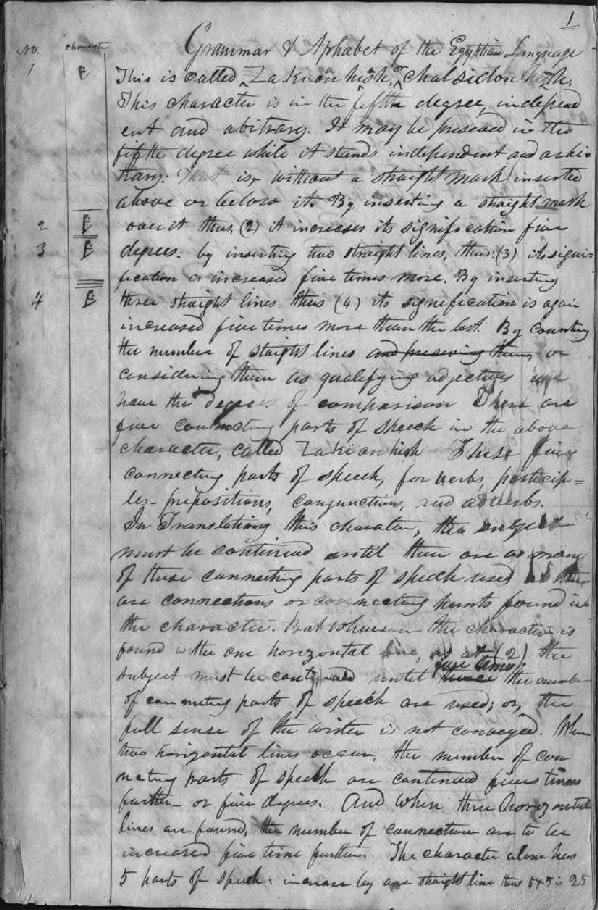 1
No. character Grammar & Aphabet of the Egyptian Language
1 This is called Za Kioan hish, or chalsidon hish.
This character is in the fifth degree, independ
ent and abitrary. It may be preseved in the
fifth degree while it stands independent and arbi
trary: That is, without a straight mark inserted
above or below it. By inserting a straight mark
2 over it thus, (2) it increases its signification five
3 degrees: by inserting two straight lines, thus: (3) its signi
fication is increased five times more. By inserting
4 three straight lines thus (4) its signification is again
increased five times more than the last. By counting
the number of straight lines and preseving them, or
considering them as qualifying adjectives we
have the degrees of comparison There are
five connecting parts of speech in the above
character, called Za Kioan hish These five
connecting parts of speech, for verbs, particip-
les- prepositions, conjunctions, and adverbs.
In Translating this character, this subject
must be continued until there are as many
of these connecting parts of speech used as there
are connections or connecting points found in
the character. But whenever the character is
found with one horizontal line, as at (2) the
subject must be continued until five times twice the number
of connecting parts of speech are used; or, the
full sense of the writer is not conveyed. When
two horizontal lines occur, the number of con
necting parts of speech are continued five times
further- or five degrees. And when three horizontal
lines are found, the number of connections are to be
increased five times further. The character alone has
5 parts of speech: increase by one straight line thus 5x5 is 25